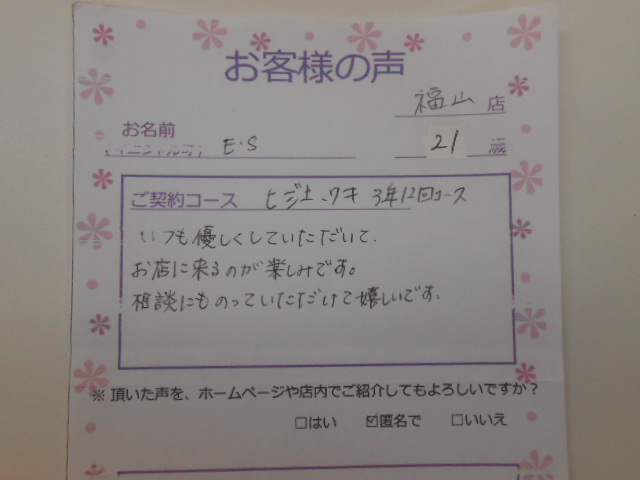 お客様の声
福山 店
お名前
(イニシャル可) E・S 21 歳
ご契約コース ヒジ上、ワキ 3年12回コース
いつも優しくしていただいて、
お店に来るのが楽しみです。
相談にものっていただけて嬉しいです。
※頂いた声を、ホームページや店内でご紹介してもよろしいですか？
□はい ☑匿名で □いいえ